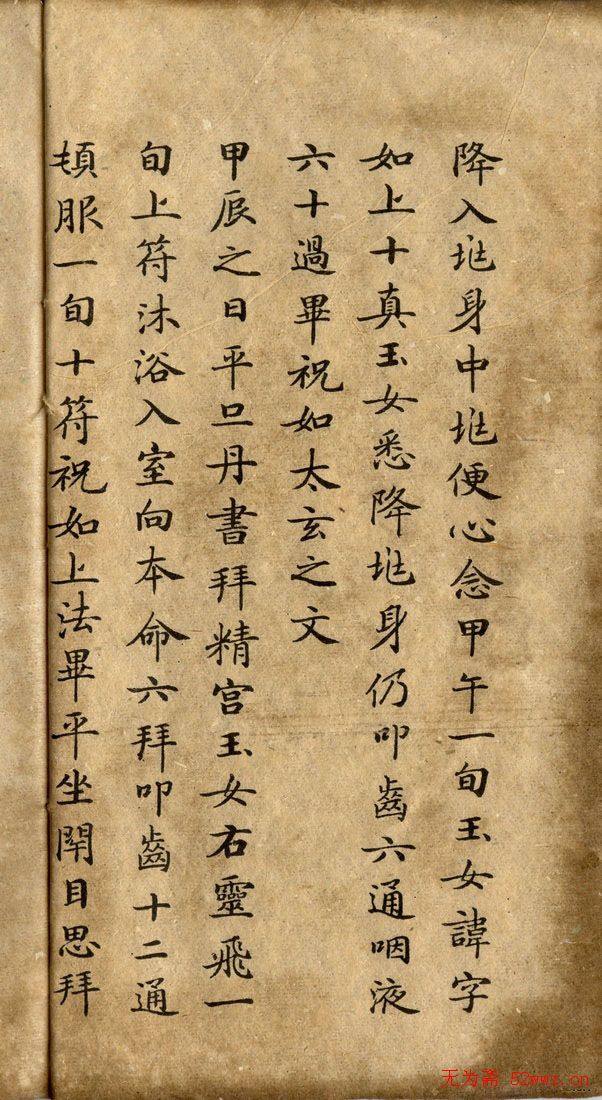 降入𡉟身中𡉟便心念甲午一旬玉女諱字
如上十真玉女悉降𡉟身仍叩齒六通咽液
六十過畢祝如太玄之文
甲辰之日平旦丹書拜精宫玉女右靈飛一
旬上符沐浴入室向本命六拜叩齒十二通
頓服一旬十符祝如上法畢平坐閇目思拜
无为斋 52wwz.cn